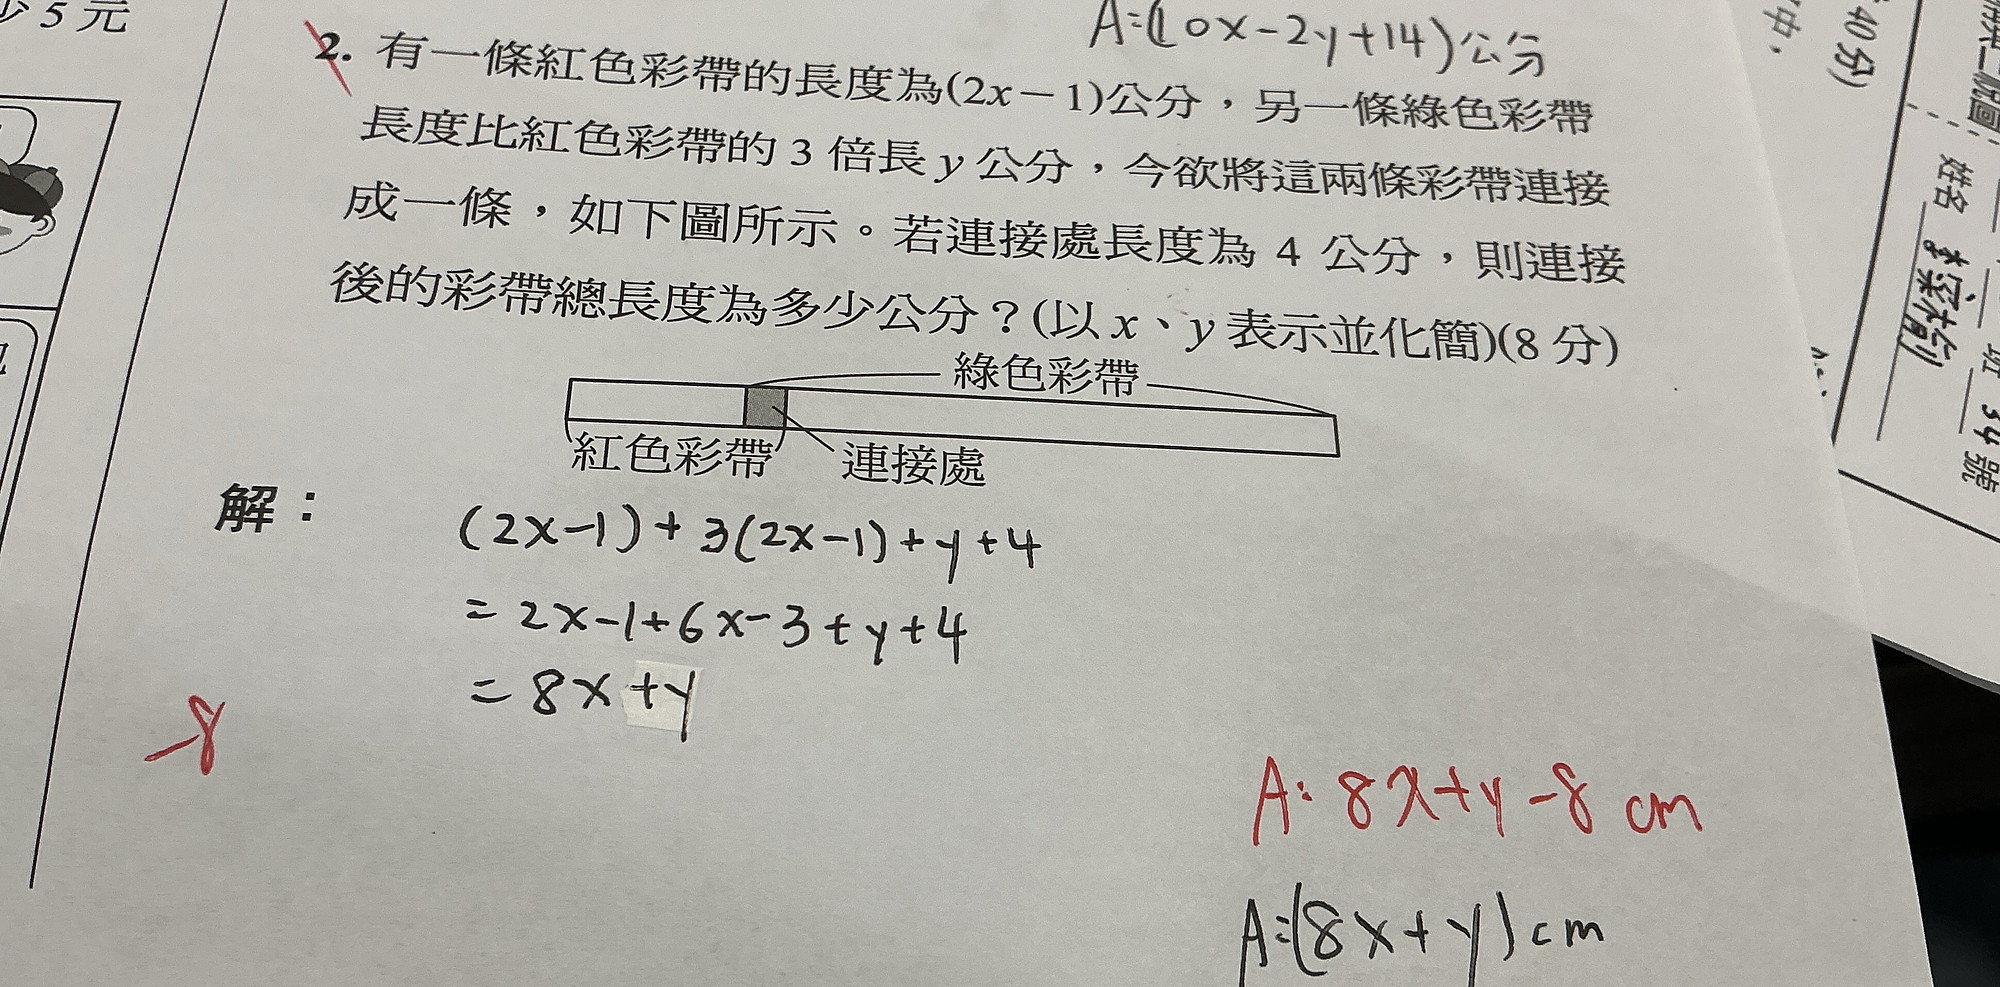 少5元
A:(10x-2y+14)公分
2. 有一條紅色彩帶的長度為(2x－1)公分，另一條綠色彩帶
長度比紅色彩帶的 3 倍長 y 公分，今欲將這兩條彩帶連接
成一條，如下圖所示。若連接處長度為 4 公分，則連接
後的彩帶總長度為多少公分？(以 x、y 表示並化簡)(8 分)
綠色彩帶
紅色彩帶
連接處
解：
(2x-1)+3(2x-1)+y+4
=2x-1+6x-3+y+4
=8x+y
-8
A: 8x+y-8 cm
A:(8x+y)cm
40分)
中.
姓名
班 34 號